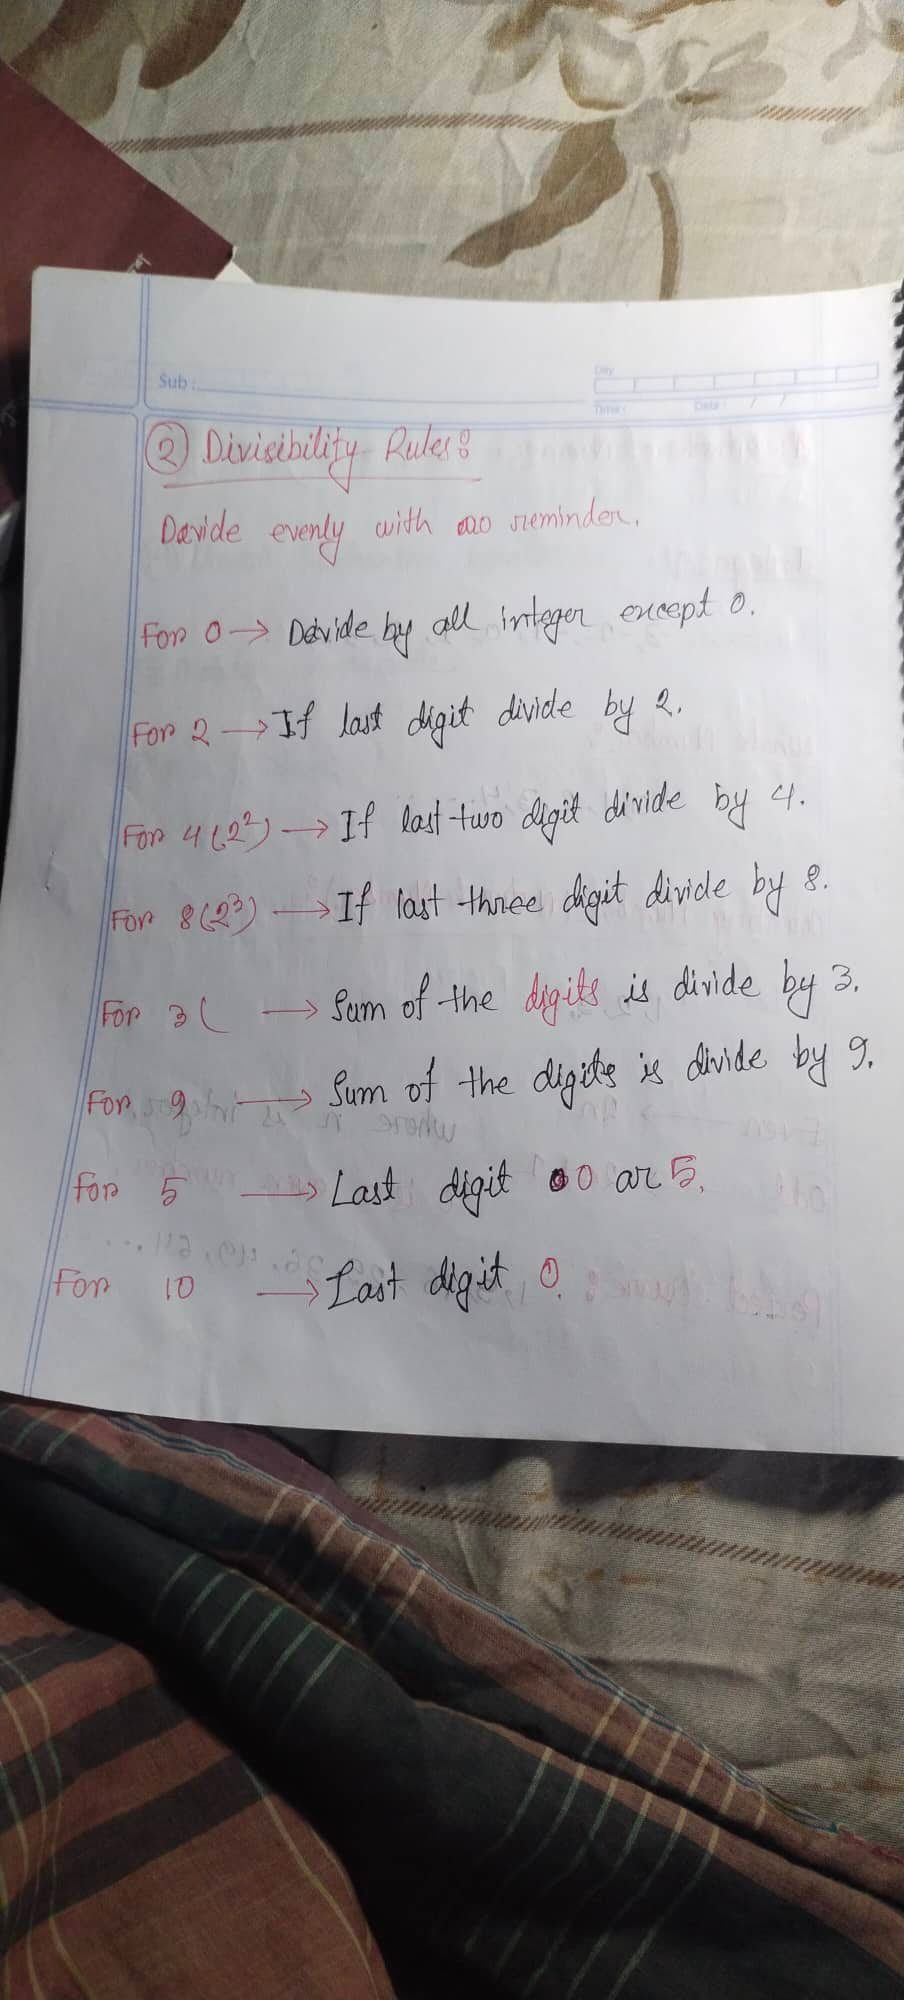 Sub :
Day
Time :
Date : / /
② Divisibility Rules :
Devide evenly with no reminder.
For 0 → Devide by all integer except 0.
For 2 → If last digit divide by 2.
For 4 (2²) → If last two digit divide by 4.
For 8 (2³) → If last three digit divide by 8.
For 3 ( → Sum of the digits is divide by 3.
For 9 → Sum of the digits is divide by 9.
For 5 → Last digit 0 or 5.
For 10 → Last digit 0.